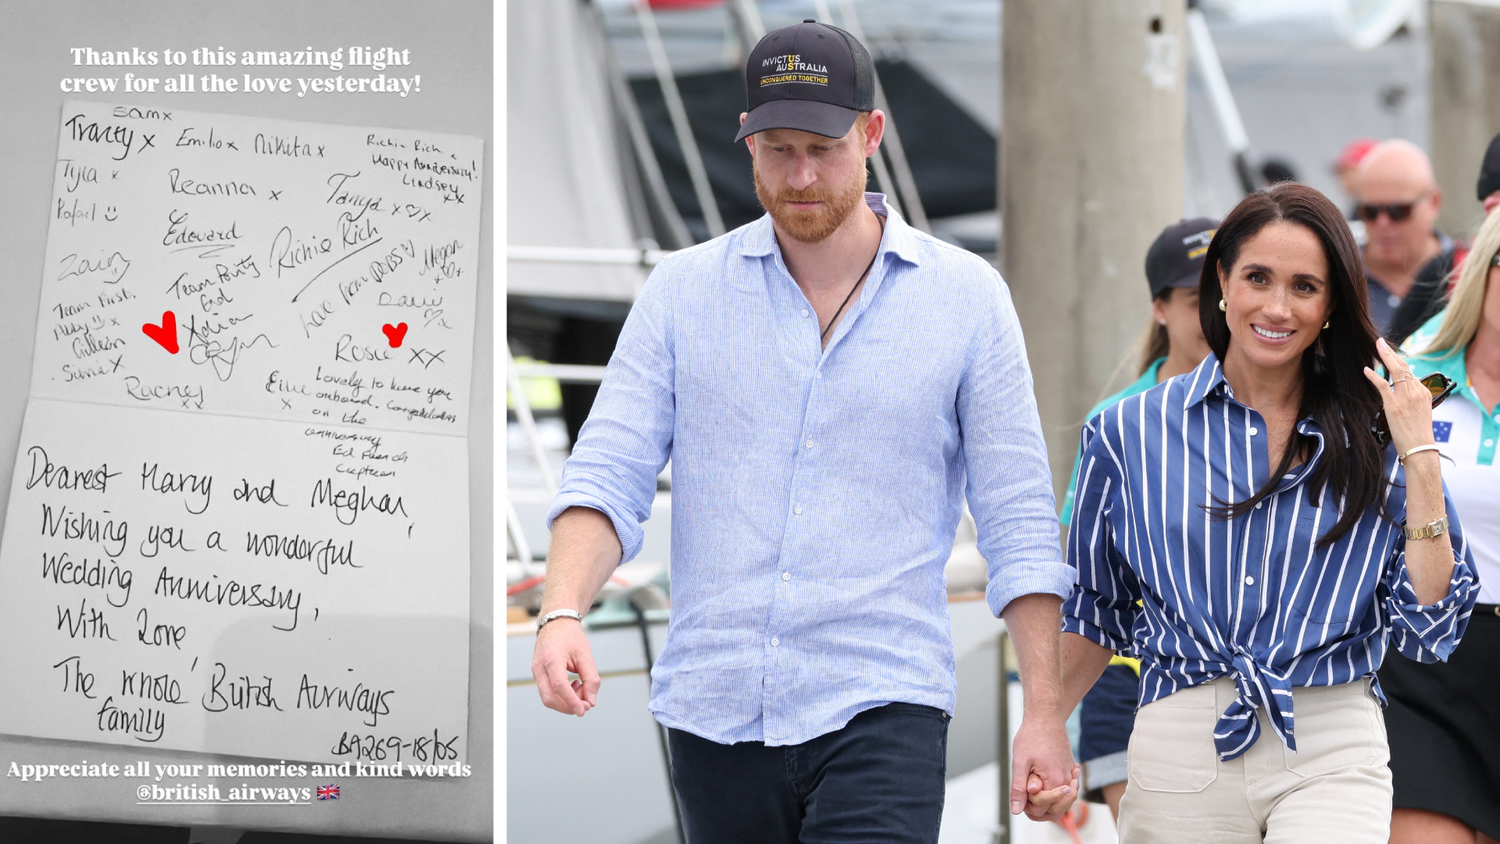 Thanks to this amazing flight
crew for all the love yesterday!
Samx
Tracey x Emilio x Nikita x
Richie Rich x
Happy Anniversary!
Lindsey
xx
Tyla x
Reanna x
Tanya x♡x
Rafael
Edward
Richie Rich
Zain
Team Purty
End
love from DEBS ♡
Megan
Team First.
Gilleon
Silvia x
Rosie xx
Racney
xx
Ellie
x
Lovely to have you
onboard. Congratulations
on the
anniversary
Ed French
Captain
Dearest Harry and Meghan,
Wishing you a wonderful
Wedding Anniversary,
With Love
The whole British Airways
family
BA269-18/05
Appreciate all your memories and kind words
@british_airways 🇬🇧
INVICTUS
AUSTRALIA
UNCONQUERED TOGETHER